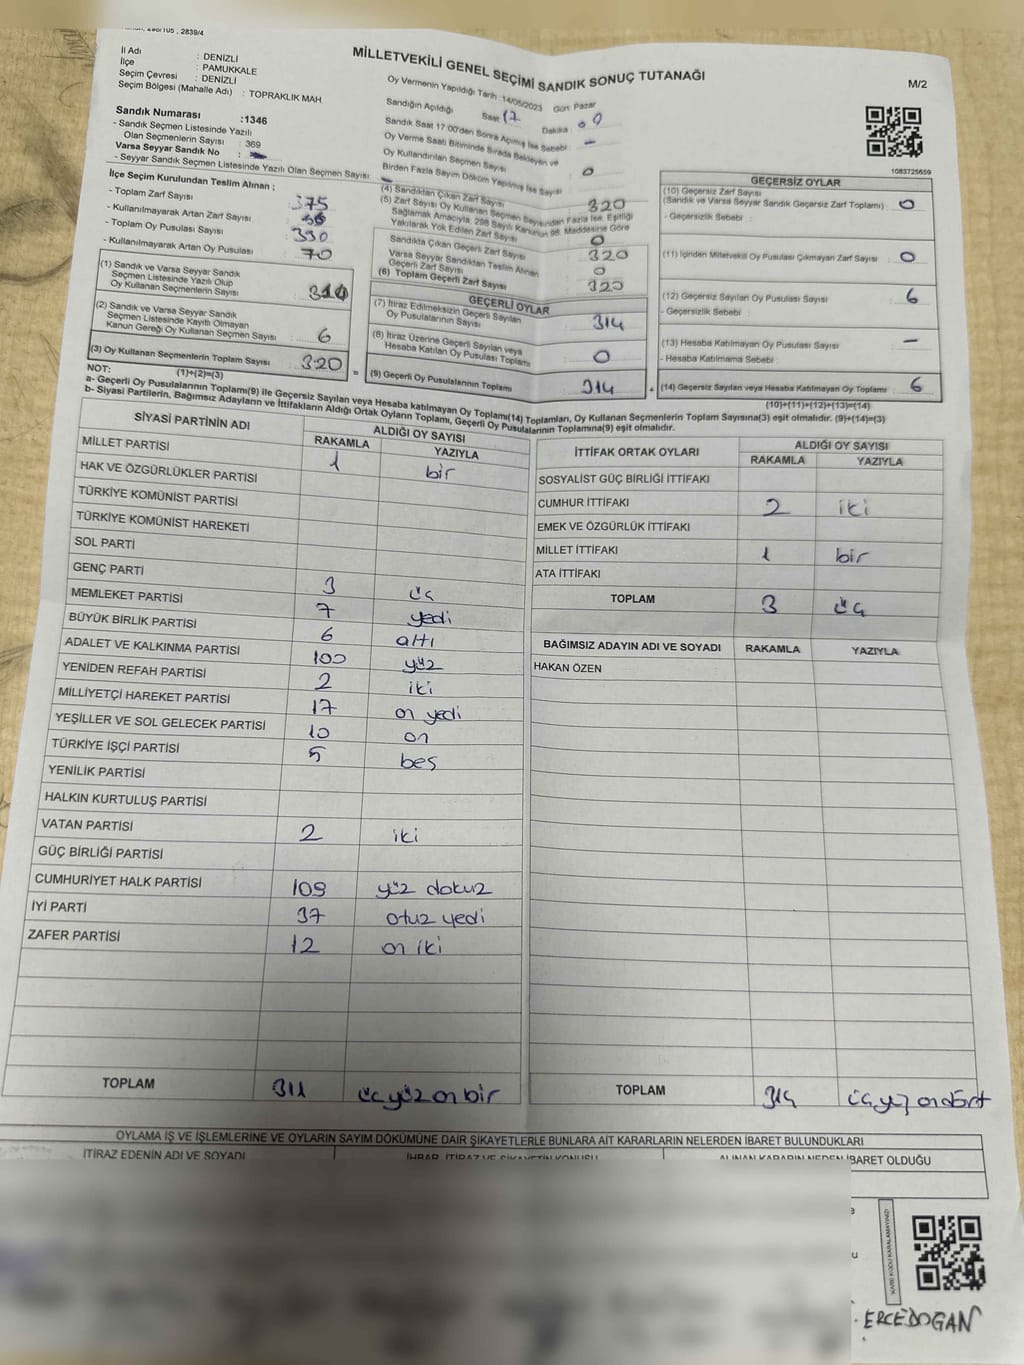 2839/4
İl Adı : DENİZLİ
İlçe : PAMUKKALE
Seçim Çevresi : DENİZLİ
Seçim Bölgesi (Mahalle Adı) : TOPRAKLIK MAH.
MİLLETVEKİLİ GENEL SEÇİMİ SANDIK SONUÇ TUTANAĞI
M/2
Oy Vermenin Yapıldığı Tarih :14/05/2023 Gün: Pazar
Sandığın Açıldığı Saat: 17 Dakika : 00
Sandık Saat 17:00'den Sonra Açılmış İse Sebebi : -
Oy Verme Saati Bitiminde Sırada Bekleyen ve
Oy Kullandırılan Seçmen Sayısı : 0
Birden Fazla Sayım Döküm Yapılmış İse Sayısı
Sandık Numarası :1346
- Sandık Seçmen Listesinde Yazılı
Olan Seçmenlerin Sayısı : 369
Varsa Seyyar Sandık No :
- Seyyar Sandık Seçmen Listesinde Yazılı Olan Seçmen Sayısı:
İlçe Seçim Kurulundan Teslim Alınan ;
- Toplam Zarf Sayısı : 375
- Kullanılmayarak Artan Zarf Sayısı :
- Toplam Oy Pusulası Sayısı : 390
- Kullanılmayarak Artan Oy Pusulası : 70
(1) Sandık ve Varsa Seyyar Sandık
Seçmen Listesinde Yazılı Olup
Oy Kullanan Seçmenlerin Sayısı : 314
(2) Sandık ve Varsa Seyyar Sandık
Seçmen Listesinde Kayıtlı Olmayan
Kanun Gereği Oy Kullanan Seçmen Sayısı : 6
(3) Oy Kullanan Seçmenlerin Toplam Sayısı : 320
(1)+(2)=(3)
(4) Sandıktan Çıkan Zarf Sayısı : 320
(5) Zarf Sayısı Oy Kullanan Seçmen Sayısından Fazla İse, Eşitliği
Sağlamak Amacıyla, 298 Sayılı Kanunun 98. Maddesine Göre
Yakılarak Yok Edilen Zarf Sayısı : 0
Sandıkta Çıkan Geçerli Zarf Sayısı : 320
Varsa Seyyar Sandıktan Teslim Alınan
Geçerli Zarf Sayısı : 0
(6) Toplam Geçerli Zarf Sayısı : 320
GEÇERLİ OYLAR
(7) İtiraz Edilmeksizin Geçerli Sayılan
Oy Pusulalarının Sayısı : 314
(8) İtiraz Üzerine Geçerli Sayılan veya
Hesaba Katılan Oy Pusulası Toplamı : 0
= (9) Geçerli Oy Pusulalarının Toplamı : 314
1083725659
GEÇERSİZ OYLAR
(10) Geçersiz Zarf Sayısı
(Sandık ve Varsa Seyyar Sandık Geçersiz Zarf Toplamı) : 0
- Geçersizlik Sebebi :
(11) İçinden Milletvekili Oy Pusulası Çıkmayan Zarf Sayısı : 0
(12) Geçersiz Sayılan Oy Pusulası Sayısı : 6
- Geçersizlik Sebebi :
(13) Hesaba Katılmayan Oy Pusulası Sayısı : -
- Hesaba Katılmama Sebebi :
+ (14) Geçersiz Sayılan veya Hesaba Katılmayan Oy Toplamı : 6
(10)+(11)+(12)+(13)=(14)
NOT:
a- Geçerli Oy Pusulalarının Toplamı(9) ile Geçersiz Sayılan veya Hesaba katılmayan Oy Toplamı(14) Toplamları, Oy Kullanan Seçmenlerin Toplam Sayısına(3) eşit olmalıdır. (9)+(14)=(3)
b- Siyasi Partilerin, Bağımsız Adayların ve İttifakların Aldığı Ortak Oyların Toplamı, Geçerli Oy Pusulalarının Toplamına(9) eşit olmalıdır.
SİYASİ PARTİNİN ADI ALDIĞI OY SAYISI
RAKAMLA YAZIYLA
MİLLET PARTİSİ 1 bir
HAK VE ÖZGÜRLÜKLER PARTİSİ
TÜRKİYE KOMÜNİST PARTİSİ
TÜRKİYE KOMÜNİST HAREKETİ
SOL PARTİ
GENÇ PARTİ 3 üç
MEMLEKET PARTİSİ 7 yedi
BÜYÜK BİRLİK PARTİSİ 6 altı
ADALET VE KALKINMA PARTİSİ 100 yüz
YENİDEN REFAH PARTİSİ 2 iki
MİLLİYETÇİ HAREKET PARTİSİ 17 on yedi
YEŞİLLER VE SOL GELECEK PARTİSİ 10 on
TÜRKİYE İŞÇİ PARTİSİ 5 beş
YENİLİK PARTİSİ
HALKIN KURTULUŞ PARTİSİ
VATAN PARTİSİ 2 iki
GÜÇ BİRLİĞİ PARTİSİ
CUMHURİYET HALK PARTİSİ 109 yüz dokuz
İYİ PARTİ 37 otuz yedi
ZAFER PARTİSİ 12 on iki
TOPLAM 311 üç yüz on bir
İTTİFAK ORTAK OYLARI ALDIĞI OY SAYISI
RAKAMLA YAZIYLA
SOSYALİST GÜÇ BİRLİĞİ İTTİFAKI
CUMHUR İTTİFAKI 2 iki
EMEK VE ÖZGÜRLÜK İTTİFAKI
MİLLET İTTİFAKI 1 bir
ATA İTTİFAKI
TOPLAM 3 üç
BAĞIMSIZ ADAYIN ADI VE SOYADI RAKAMLA YAZIYLA
HAKAN ÖZEN
TOPLAM 314 üç yüz on dört
OYLAMA İŞ VE İŞLEMLERİNE VE OYLARIN SAYIM DÖKÜMÜNE DAİR ŞİKAYETLERLE BUNLARA AİT KARARLARIN NELERDEN İBARET BULUNDUKLARI
İTİRAZ EDENİN ADI VE SOYADI İHBAR, İTİRAZ VE ŞİKAYETİN KONUSU ALINAN KARARIN NEDEN İBARET OLDUĞU
KARE KODU KARALAMAYINIZ!
ERCEDOGAN